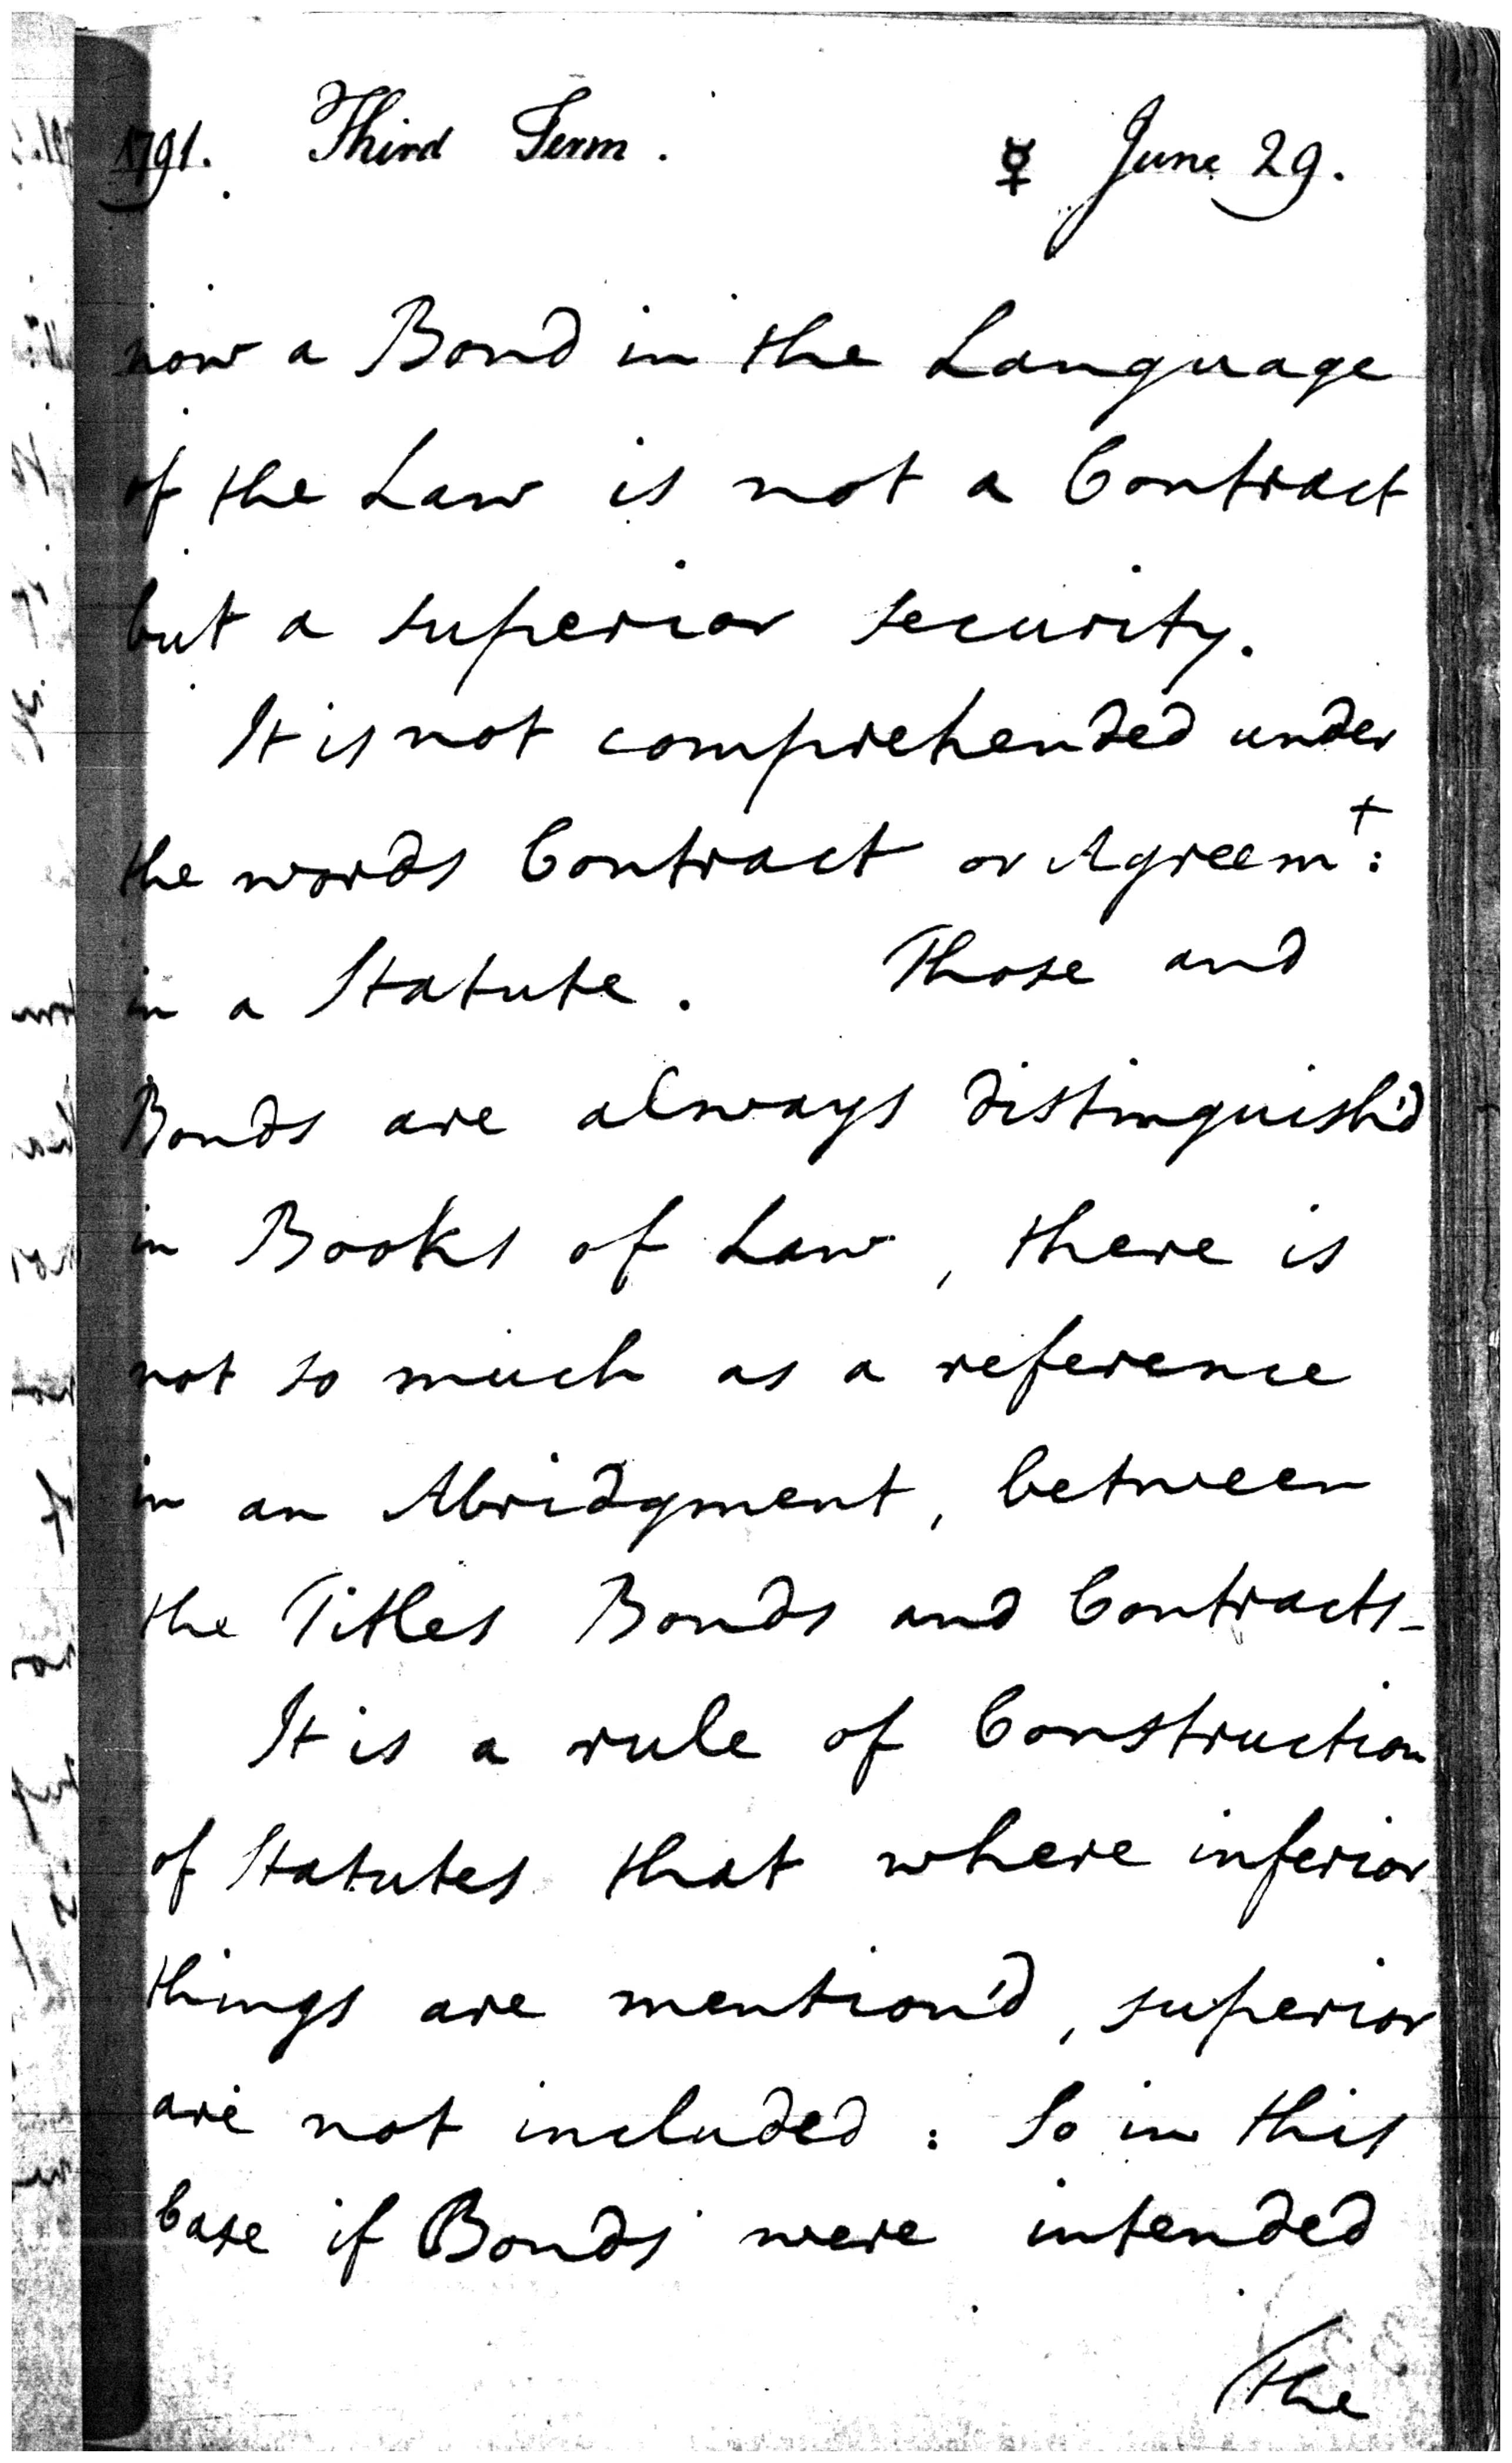 1791. Third Term. ☿ June 29.
now a Bond in the Language
of the Law is not a Contract
but a superior security.
It is not comprehended under
the words Contract or Agreemt:
in a Statute. Those and
Bonds are always distinguish'd
in Books of Law, there is
not so much as a reference
in an Abridgment, between
the Titles Bonds and Contracts-
It is a rule of Construction
of Statutes that where inferior
things are mention'd, superior
are not included: So in this
Case if Bonds were intended
the